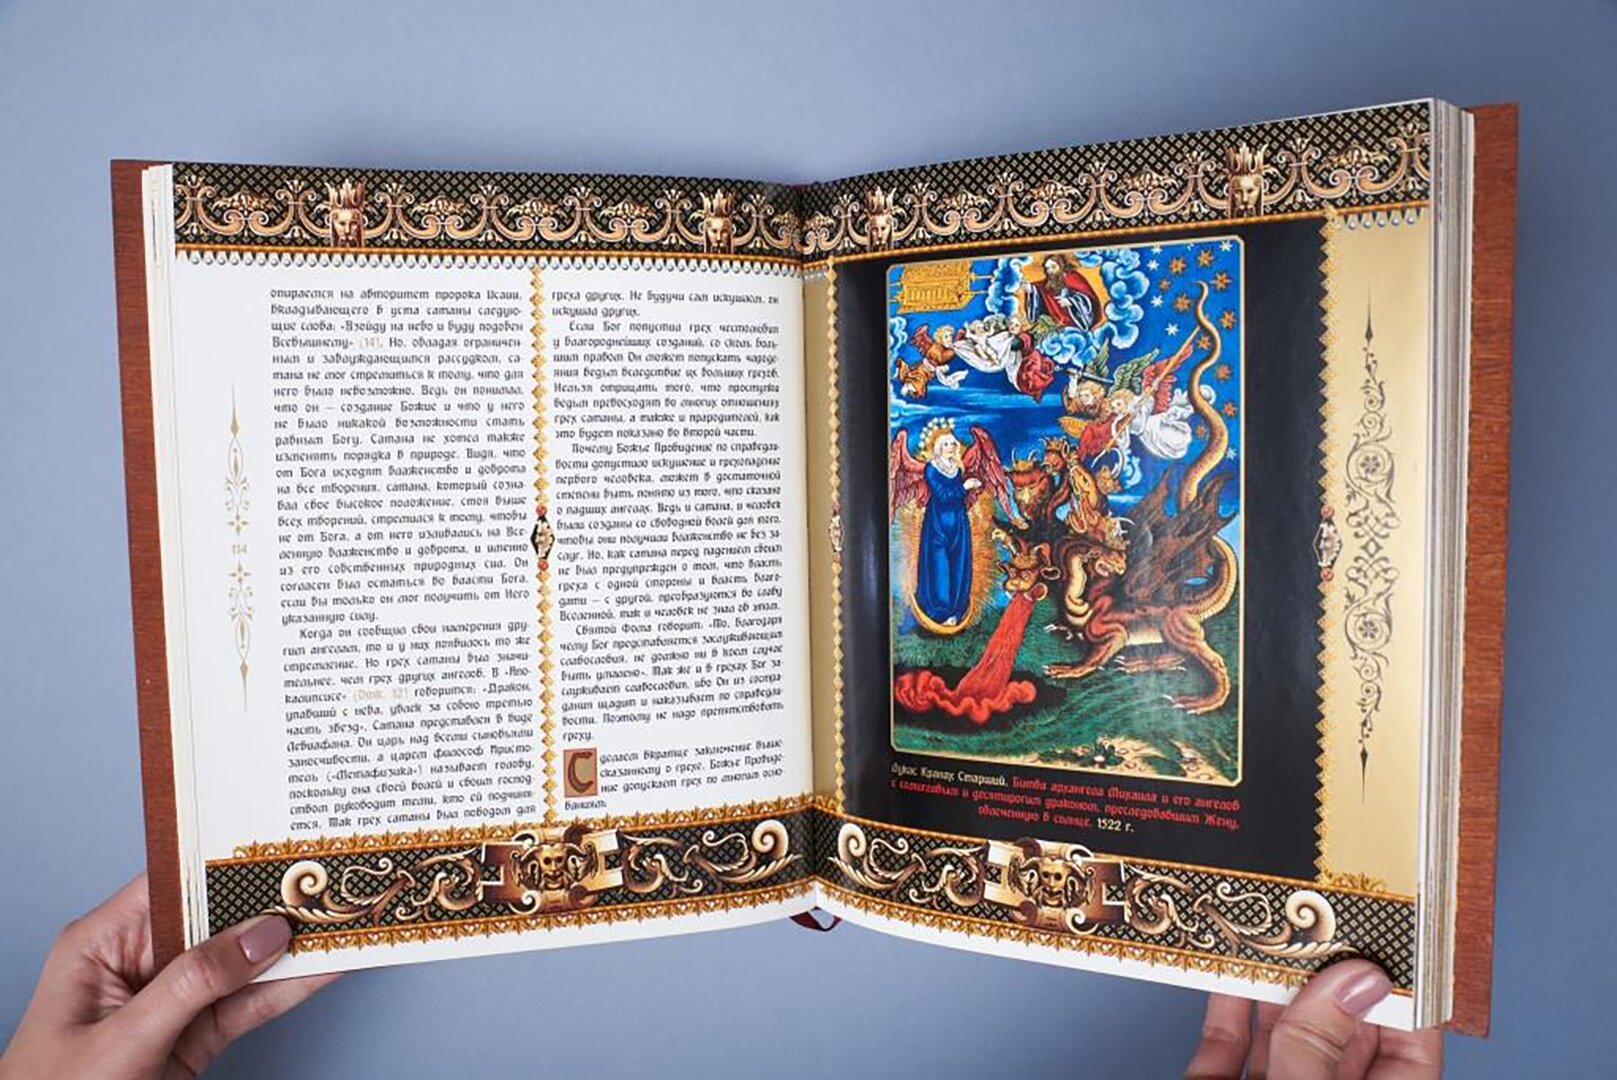 опирается на авторитет пророка Исаии,
вкладывающего в уста сатаны следую-
щие слова: «Взойду на небо и буду подобен
Всевышнему» (14). Но, обладая ограничен-
ным и заблуждающимся рассудком, са-
тана не мог стремиться к тому, что для
него было невозможно. Ведь он понимал,
что он — создание Божие и что у него
не было никакой возможности стать
равным Богу. Сатана не хотел также
изменять порядка в природе. Видя, что
от Бога исходят блаженство и доброта
на все творения, сатана, который созна-
вал свое высокое положение, стоя выше
всех творений, стремился к тому, чтобы
не от Бога, а от него изливались на Все-
ленную блаженство и доброта, и именно
из его собственных природных сил. Он
согласен был остаться во власти Бога,
если бы только он мог получить от Него
указанную силу.
Когда он сообщил свои намерения дру-
гим ангелам, то и у них появилось то же
стремление. Но грех сатаны был значи-
тельнее, чем грех других ангелов. В «Апо-
калипсисе» (Откр. 12) говорится: «Дракон,
упавший с неба, увлек за собою третью
часть звезд». Сатана представлен в виде
Левиафана. Он царь над всеми сыновьями
заносчивости, а царем философ Аристо-
тель («Метафизика») называет голову,
поскольку она своей волей и своим господ-
ством руководит теми, кто ей подчиня-
ется. Так грех сатаны был поводом для
114
греха других. Не будучи сам искушаем, он
искушал других.
Если Бог попустил грех честолюбия
у благороднейших созданий, со сколь боль-
шим правом Он может попускать чароде-
яния ведьм вследствие их больших грехов.
Нельзя отрицать того, что проступки
ведьм превосходят во многих отношениях
грех сатаны, а также и прародителей, как
это будет показано во второй части.
Почему Божье Провидение по справедли-
вости допустило искушение и грехопадение
первого человека, может в достаточной
степени быть понято из того, что сказано
о падших ангелах. Ведь и сатана, и человек
были созданы со свободной волей для того,
чтобы они получили блаженство не без за-
слуг. Но, как сатана перед падением своим
не был предупрежден о том, что власть
греха с одной стороны и власть благо-
дати — с другой, преобразуются во славу
Вселенной, так и человек не знал об этом.
Святой Фома говорит: «То, благодаря
чему Бог представляется заслуживающим
славословия, не должно ни в коем случае
быть умалено». Так же и в грехах Бог за-
служивает славословия, ибо Он из состра-
дания щадит и наказывает по справедли-
вости. Поэтому не надо препятствовать
греху.
Сделаем вкратце заключение выше-
сказанному о грехе. Божье Провиде-
ние допускает грех по многим осно-
ваниям.
Лукас Кранах Старший. Битва архангела Михаила и его ангелов
с семиглавым и десятирогим драконом, преследовавшим Жену,
облеченную в солнце. 1522 г.